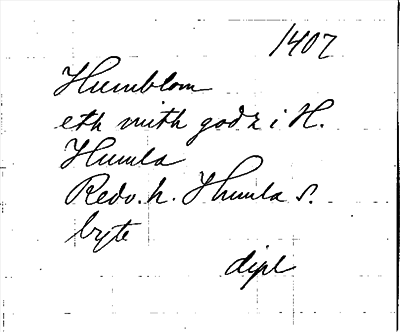 1407
Humblom
eth mith godz i H.
Humla
Redv. h. Humla s.
byte
dipl